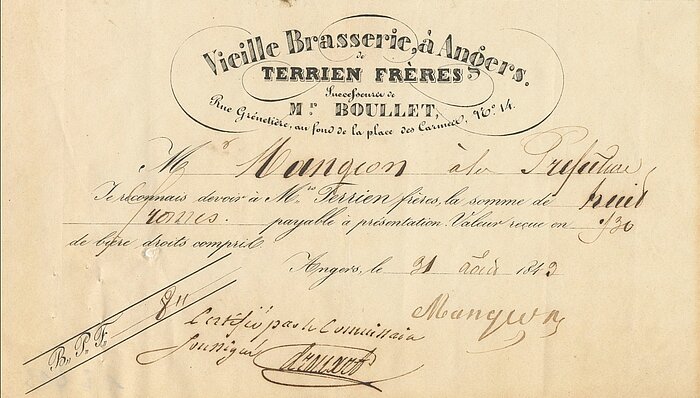 Vieille Brasserie, à Angers.
de
TERRIEN FRÈRES
Successeurs de
Mr. BOULLET,
Rue Grénetière, au fond de la place des Carmes, No. 14.
Mr Mangeon à la Préfecture
Je reconnais devoir à Mrs Terrien frères, la somme de huit
francs. payable à présentation. Valeur reçue en 1/30
de bière droits compris
Angers, le 31 Août 1843
Mangeon
B. P. F. 8
Certifié par le Commissaire
soussigné